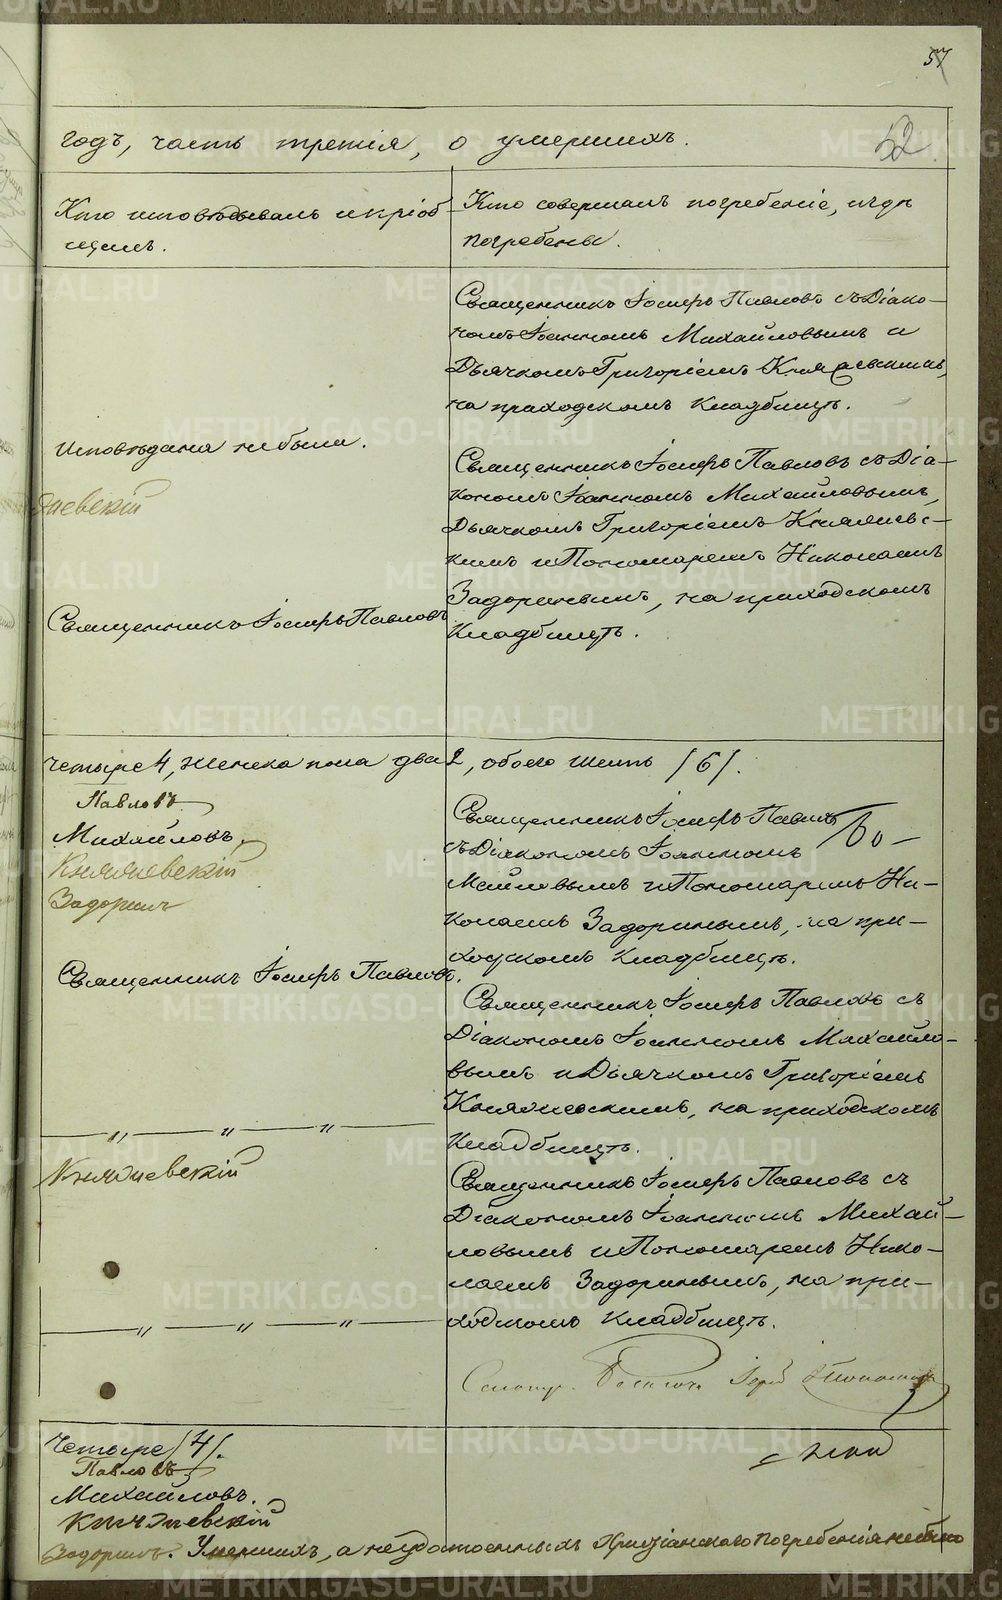 57
годъ, часть третія, о умершихъ.
52
Кто исповѣдывалъ и пріоб-
щилъ.
Кто совершалъ погребеніе, и гдѣ
погребены.
Священникъ Іосифъ Павловъ съ Діако-
номъ Іоанномъ Михайловымъ и
Дьячкомъ Григоріемъ Княжевскимъ,
на приходскомъ кладбищѣ.
Исповѣдана не была.
Священникъ Іосифъ Павловъ съ Діа-
кономъ Іоанномъ Михайловымъ,
Дьячкомъ Григоріемъ Княжевс-
кимъ и Пономаремъ Николаемъ
Задоринымъ, на приходскомъ
кладбищѣ.
Священникъ Іосифъ Павловъ
четыре 4, женска пола два 2, обоего шесть /6/.
Павловъ
Михайловъ,
Княжевскій
Задоринъ
Священникъ Іосифъ Павловъ
съ Діакономъ Іоанномъ
и Пономаремъ Ни-
колаемъ Задоринымъ, на при-
ходскомъ кладбищѣ.
Священникъ Іосифъ Павловъ.
Священникъ Іосифъ Павловъ съ
Діакономъ Іоанномъ Михайло-
вымъ и Дьячкомъ Григоріемъ
Княжевскимъ, на приходскомъ
кладбищѣ.
— „ — „ — „ —
Княжевскій
Священникъ Іосифъ Павловъ съ
Діакономъ Іоанномъ Михай-
ловымъ и Пономаремъ Нико-
лаемъ Задоринымъ, на при-
ходскомъ кладбищѣ.
— „ — „ — „ —
Четыре /4/.
Павловъ
Михайловъ.
Княжевскій
Задоринъ. Умершихъ, а неудостоенныхъ Христіанского погребенія небыло
METRIKI.GASO-URAL.RU